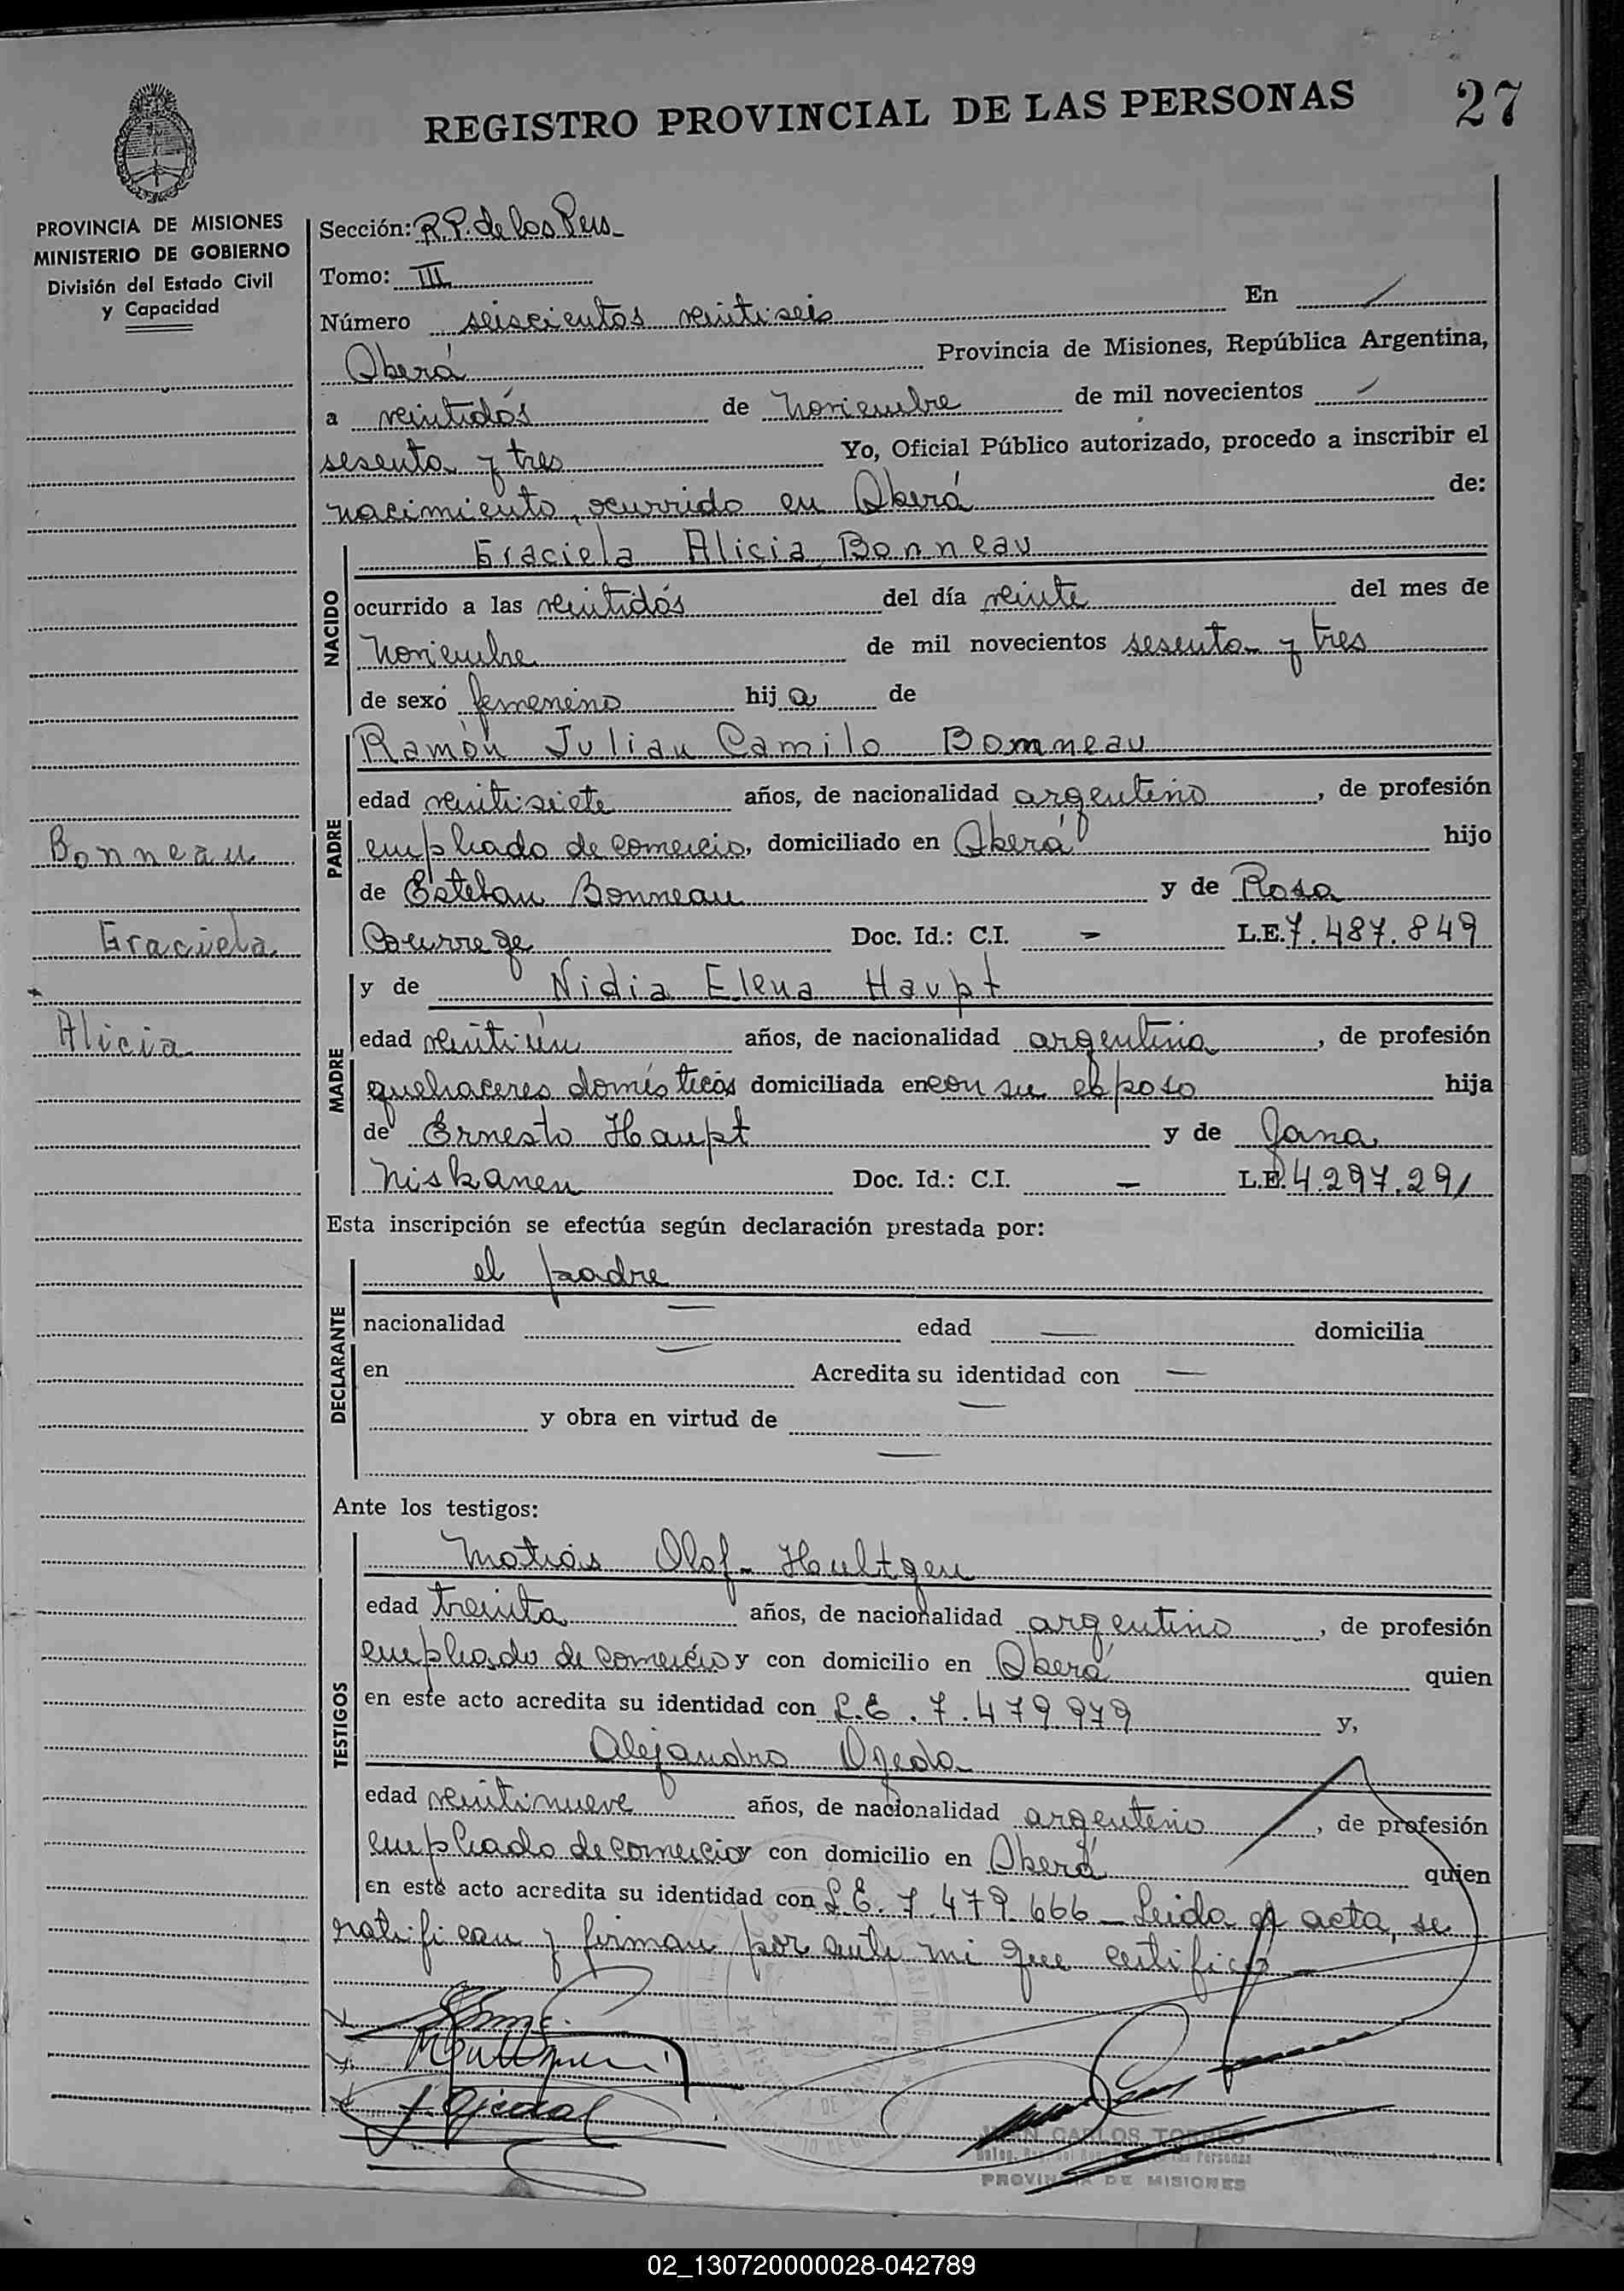 REGISTRO PROVINCIAL DE LAS PERSONAS 27
PROVINCIA DE MISIONES
MINISTERIO DE GOBIERNO
División del Estado Civil
y Capacidad
Bonneau
Graciela
Alicia
Sección: R.P. de las Pers
Tomo: III
Número seiscientos veintiseis En
Oberá Provincia de Misiones, República Argentina,
a veintidós de Noviembre de mil novecientos
sesenta y tres Yo, Oficial Público autorizado, procedo a inscribir el
nacimiento, ocurrido en Oberá de:
NACIDO
Graciela Alicia Bonneau
ocurrido a las veintidós del día veinte del mes de
Noviembre de mil novecientos sesenta y tres
de sexo femenino hija de
PADRE
Ramón Julian Camilo Bonneau
edad veintisiete años, de nacionalidad argentino, de profesión
empleado de comercio, domiciliado en Oberá hijo
de Esteban Bonneau y de Rosa
Courrege Doc. Id.: C.I. – L.E. 7.487.849
MADRE
y de Nidia Elena Haupt
edad veintiún años, de nacionalidad argentina, de profesión
quehaceres domésticos domiciliada en con su esposo hija
de Ernesto Haupt y de Jana
Niskanen Doc. Id.: C.I. – L.E. 4.297.291
Esta inscripción se efectúa según declaración prestada por:
DECLARANTE
el padre
nacionalidad — edad — domicilia
en — Acredita su identidad con —
y obra en virtud de —
—
Ante los testigos:
TESTIGOS
Matias Olof Hultgen
edad treinta años, de nacionalidad argentino, de profesión
empleado de comercio y con domicilio en Oberá quien
en este acto acredita su identidad con L.E. 7.479.979 y,
Alejandro Ojeda
edad veintinueve años, de nacionalidad argentino, de profesión
empleado de comercio y con domicilio en Oberá quien
en este acto acredita su identidad con L.E. 7.479.666 – Leida el acta, se
ratifican y firman por ante mi que certifico
A. Ojeda
JUAN CARLOS TORRES
PROVINCIA DE MISIONES
02_130720000028-042789